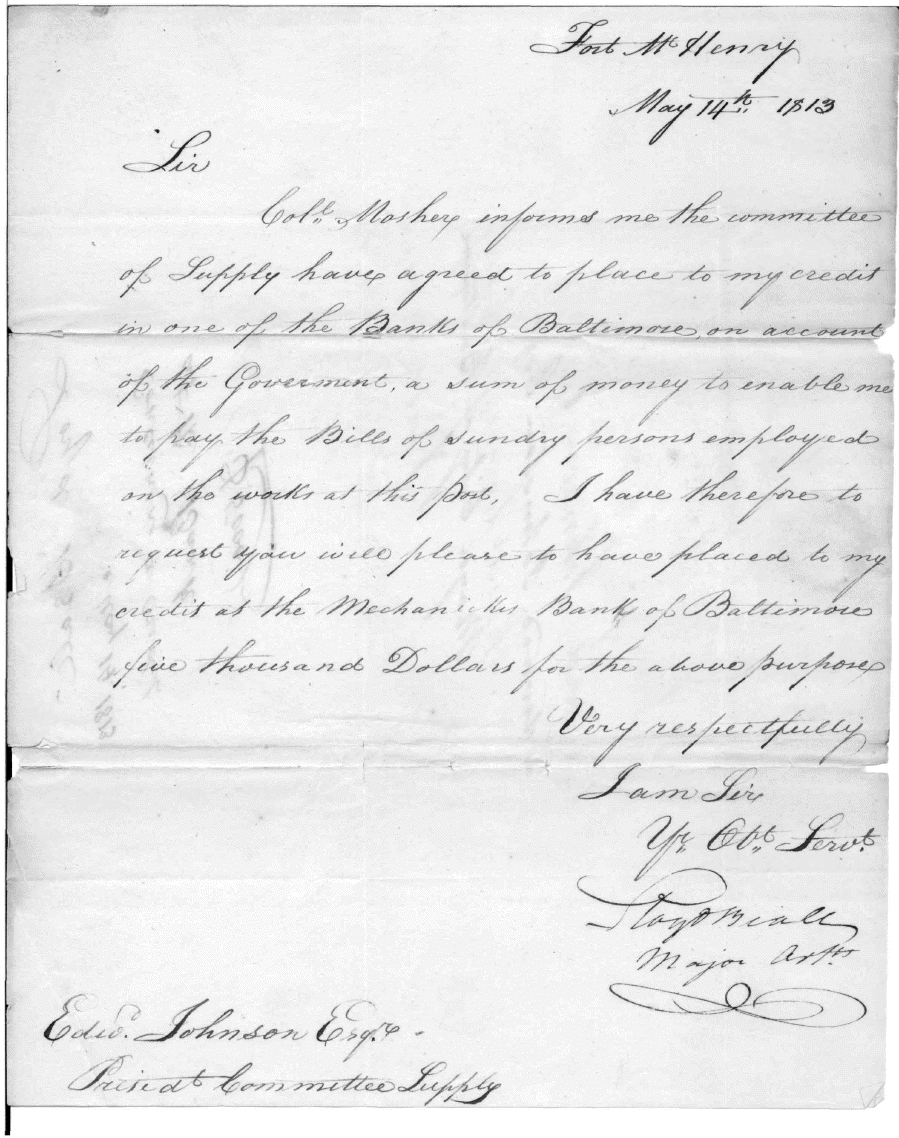 Fort Mc Henry
May 14th 1813
Sir
Coll. Mosher informs me the committee
of Supply have agreed to place to my credit
in one of the Banks of Baltimore, on account
of the Goverment, a sum of money to enable me
to pay the Bills of sundry persons employed
on the works at this post, I have therefore to
request you will please to have placed to my
credit at the Mechanicks Bank of Baltimore
five thousand Dollars for the above purpose
Very respectfully
I am Sir
Yr. Obt. Servt.
Lloyd Beall
Major Arty.
Edwd. Johnson Esqre.
Presidt Committee Supply